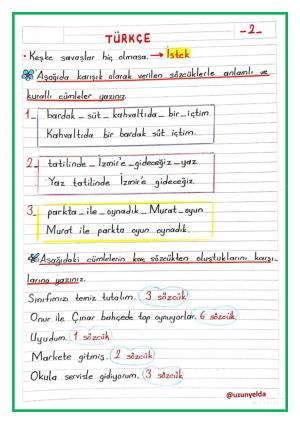 TÜRKÇE
-2-
• Keşke savaşlar hiç olmasa. → İstek
Aşağıda karışık olarak verilen sözcüklerle anlamlı ve
kurallı cümleler yazınız.
1_ bardak _ süt _ kahvaltıda _ bir _ içtim
Kahvaltıda bir bardak süt içtim.
2_ tatilinde _ İzmir'e _ gideceğiz _ yaz
Yaz tatilinde İzmir'e gideceğiz.
3_ parkta _ ile _ oynadık _ Murat _ oyun
Murat ile parkta oyun oynadık.
Aşağıdaki cümlelerin kaç sözcükten oluştuklarını karşı-
larına yazınız.
Sınıfımızı temiz tutalım. 3 sözcük
Onur ile Çınar bahçede top oynuyorlar. 6 sözcük
Uyudum. 1 sözcük
Markete gitmiş. 2 sözcük
Okula servisle gidiyorum. 3 sözcük
@uzunyelda